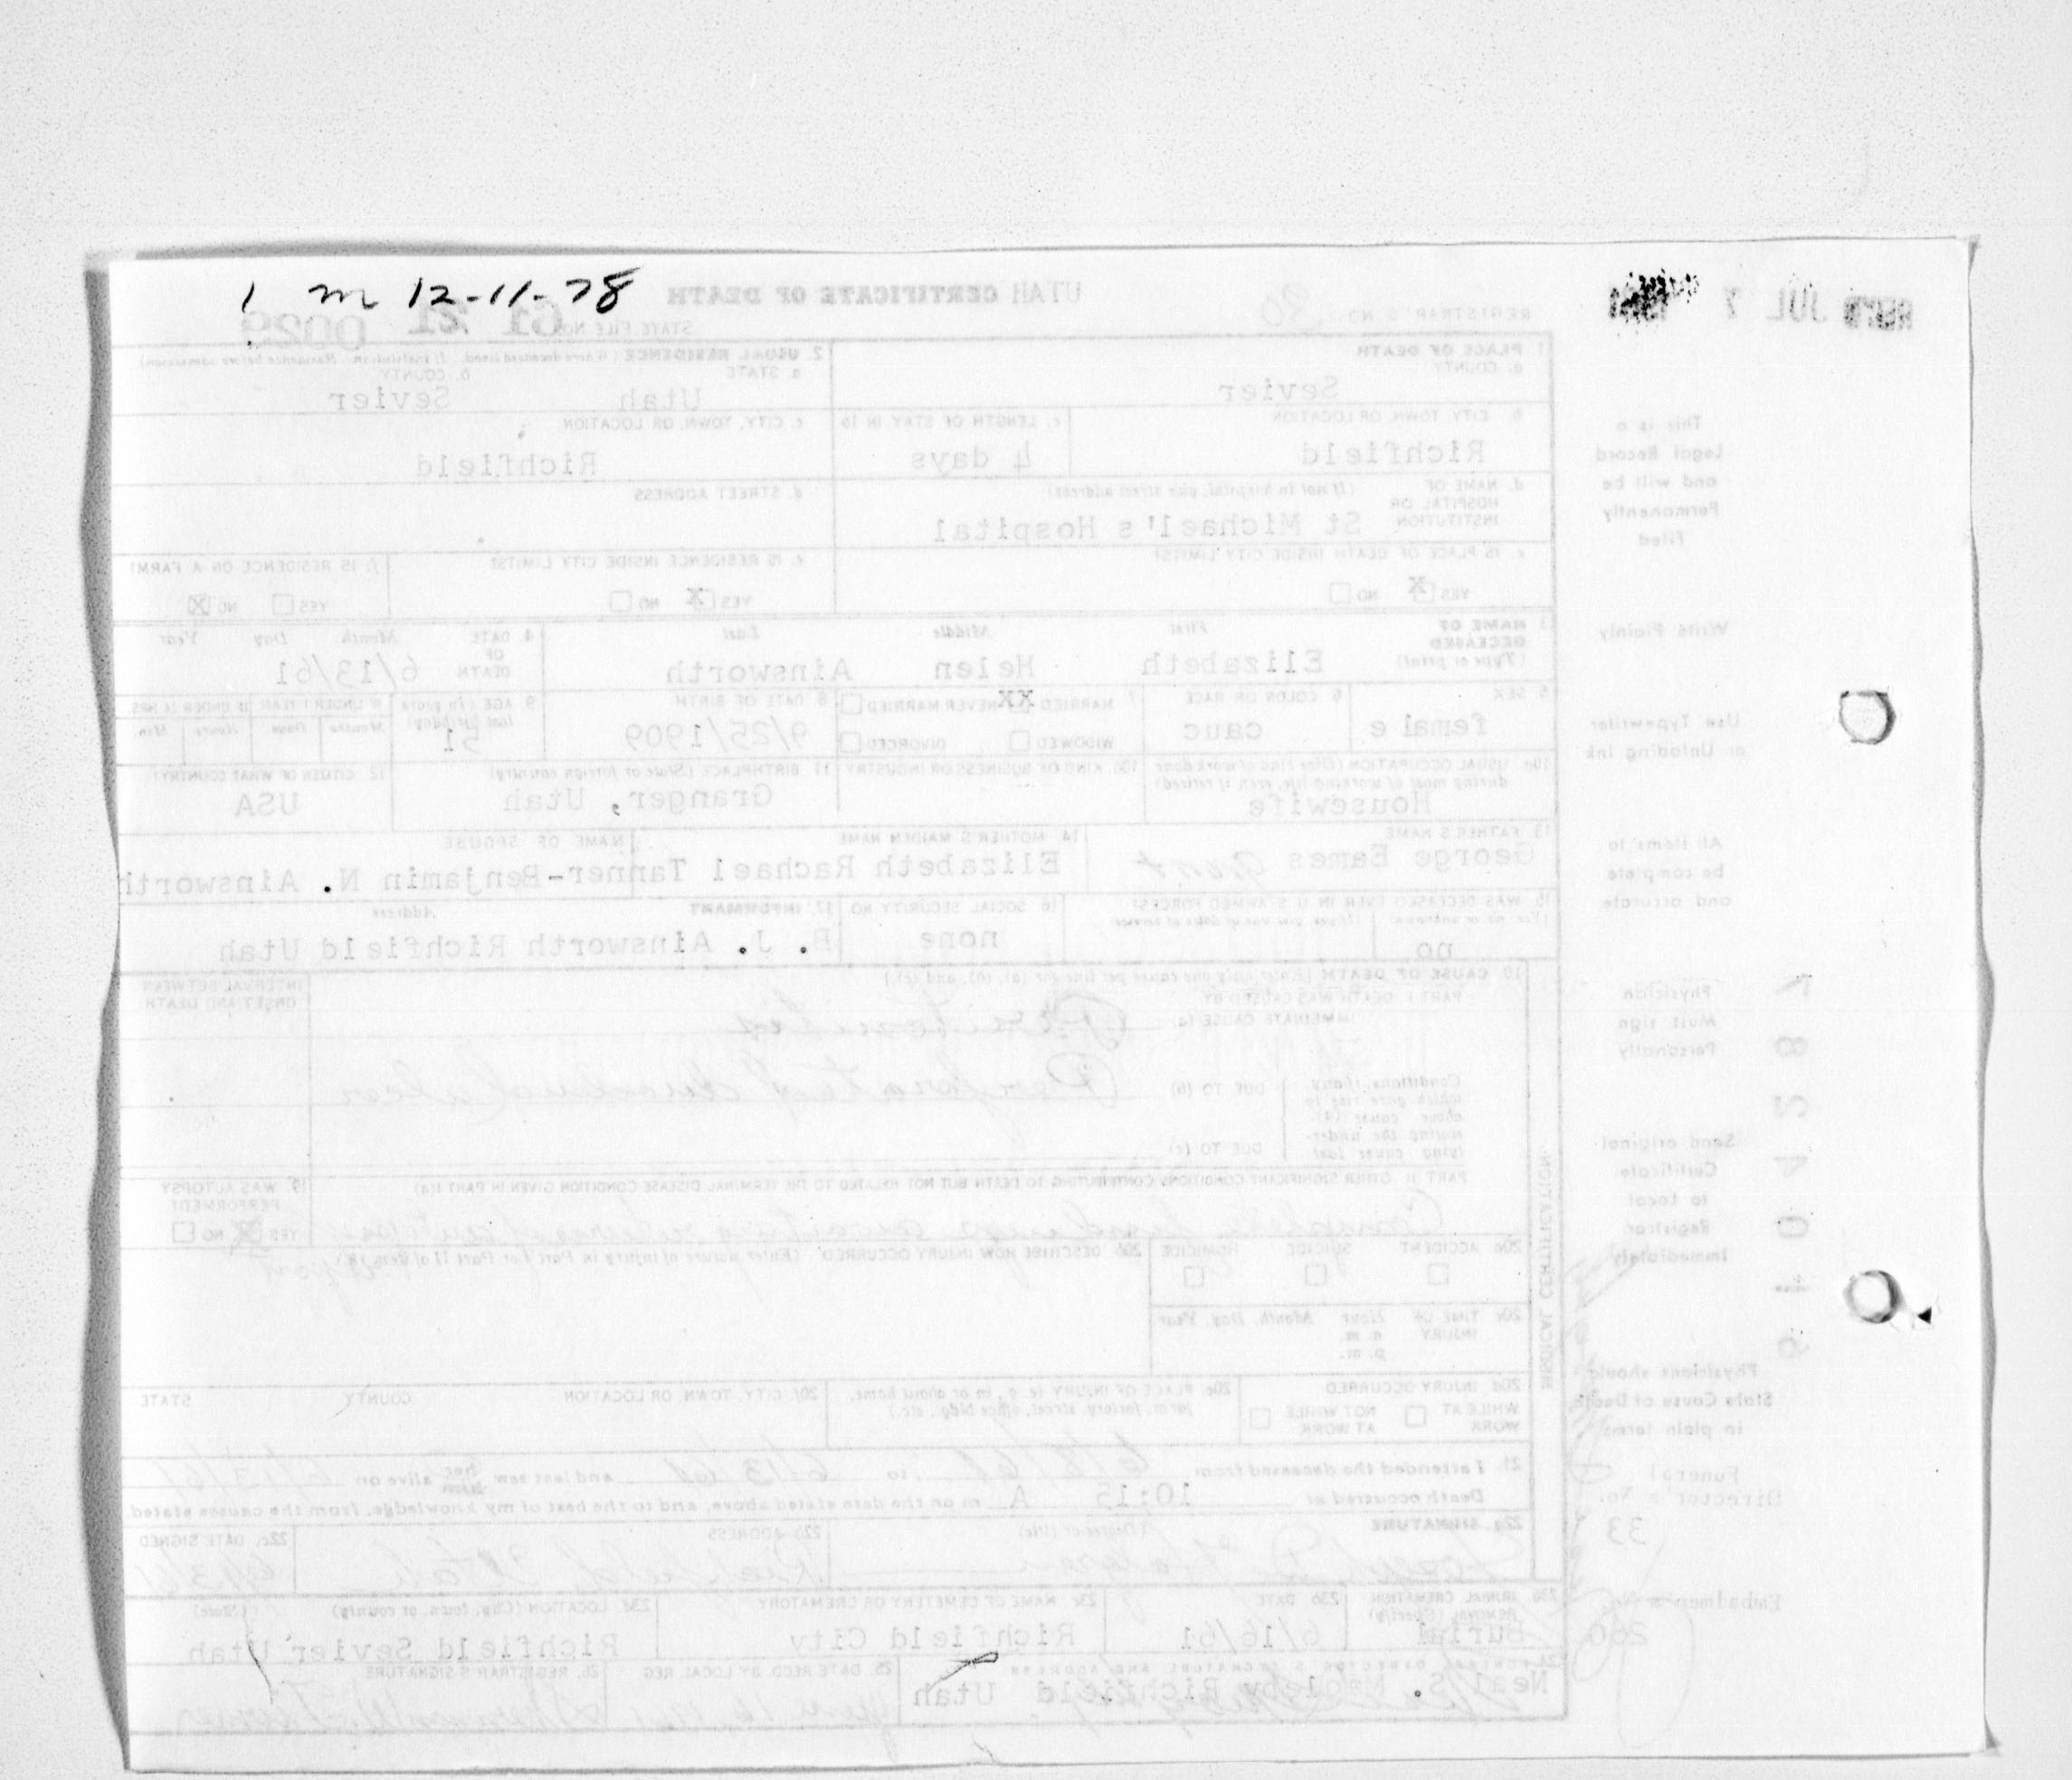 1 m 12-11-78
UTAH CERTIFICATE OF DEATH
REGISTRAR'S NO. 30
STATE FILE NO. 61 21 0028
REC'D JUL 7
1. PLACE OF DEATH
a. COUNTY
Sevier
2. USUAL RESIDENCE (Where deceased lived. If institution: Residence before admission)
a. STATE
Utah
b. COUNTY
Sevier
b. CITY, TOWN, OR LOCATION
Richfield
c. LENGTH OF STAY IN 1b
4 days
c. CITY, TOWN, OR LOCATION
Richfield
d. NAME OF HOSPITAL OR INSTITUTION (If not in hospital, give street address)
St Michael's Hospital
d. STREET ADDRESS
e. IS PLACE OF DEATH INSIDE CITY LIMITS?
YES X NO
e. IS RESIDENCE INSIDE CITY LIMITS?
YES X NO
f. IS RESIDENCE ON A FARM?
YES NO X
3. NAME OF DECEASED (Type or print)
First Middle Last
Elizabeth Helen Ainsworth
4. DATE OF DEATH Month Day Year
6/13/61
5. SEX
female
6. COLOR OR RACE
cauc
7. MARRIED XX NEVER MARRIED
WIDOWED DIVORCED
8. DATE OF BIRTH
9/25/1909
9. AGE (In years last birthday)
51
IF UNDER 1 YEAR IF UNDER 24 HRS.
Months Days Hours Min.
10a. USUAL OCCUPATION (Give kind of work done during most of working life, even if retired)
Housewife
10b. KIND OF BUSINESS OR INDUSTRY
11. BIRTHPLACE (State or foreign country)
Granger, Utah
12. CITIZEN OF WHAT COUNTRY?
USA
13. FATHER'S NAME
George Eames Grant
14. MOTHER'S MAIDEN NAME
Elizabeth Rachael Tanner-
NAME OF SPOUSE
Benjamin N. Ainsworth
15. WAS DECEASED EVER IN U. S. ARMED FORCES?
(Yes, no, or unknown) (If yes, give war or dates of service)
no
16. SOCIAL SECURITY NO.
none
17. INFORMANT Address
B. J. Ainsworth Richfield Utah
18. CAUSE OF DEATH [Enter only one cause per line for (a), (b), and (c).]
INTERVAL BETWEEN ONSET AND DEATH
PART I. DEATH WAS CAUSED BY:
IMMEDIATE CAUSE (a) Peritonitis
Conditions, if any, which gave rise to above cause (a), stating the under-lying cause last.
DUE TO (b) Perforated duodenal ulcer
DUE TO (c)
PART II. OTHER SIGNIFICANT CONDITIONS CONTRIBUTING TO DEATH BUT NOT RELATED TO THE TERMINAL DISEASE CONDITION GIVEN IN PART I(a)
Complete findings awaiting return of autopsy report
19. WAS AUTOPSY PERFORMED?
YES X NO
20a. ACCIDENT SUICIDE HOMICIDE
20b. DESCRIBE HOW INJURY OCCURRED. (Enter nature of injury in Part I or Part II of item 18.)
20c. TIME OF INJURY Hour Month, Day, Year
a. m.
p. m.
20d. INJURY OCCURRED
WHILE AT WORK NOT WHILE AT WORK
20e. PLACE OF INJURY (e.g., in or about home, farm, factory, street, office bldg., etc.)
20f. CITY, TOWN, OR LOCATION COUNTY STATE
21. I attended the deceased from 6/8/61, to 6/13/61 and last saw her him alive on 6/13/61
Death occurred at 10:15 A m on the date stated above; and to the best of my knowledge, from the causes stated.
22a. SIGNATURE (Degree or title)
22b. ADDRESS
Richfield Utah
22c. DATE SIGNED
6/13/61
23a. BURIAL, CREMATION, REMOVAL (Specify)
Burial
23b. DATE
6/16/61
23c. NAME OF CEMETERY OR CREMATORY
Richfield City
23d. LOCATION (City, town, or county) (State)
Richfield Sevier Utah
24. FUNERAL DIRECTOR'S SIGNATURE AND ADDRESS
Neal S. Magleby Richfield Utah
25. DATE RECD. BY LOCAL REG.
June 16, 1961
26. REGISTRAR'S SIGNATURE
MEDICAL CERTIFICATION
This is a
Legal Record
and will be
Permanently
Filed
Write Plainly
Use Typewriter
or Unfading Ink
All items to
be complete
and accurate
Physician
Must sign
Personally
Send original
Certificate
to Local
Registrar
Immediately
Physicians should
State Cause of Death
in plain terms
Funeral
Director's No.
33
Embalmer's No.
260